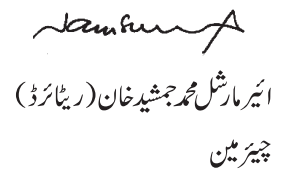 ائیر مارشل محمد جمشید خان (ریٹائرڈ)
چیئر مین